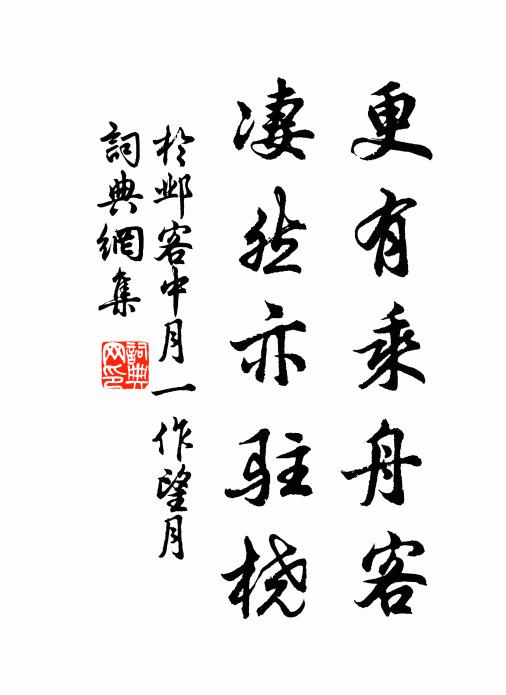 更有乘舟客
凄然亦駐桡
於邺客中月一作望月
詞典網集
詞典网印